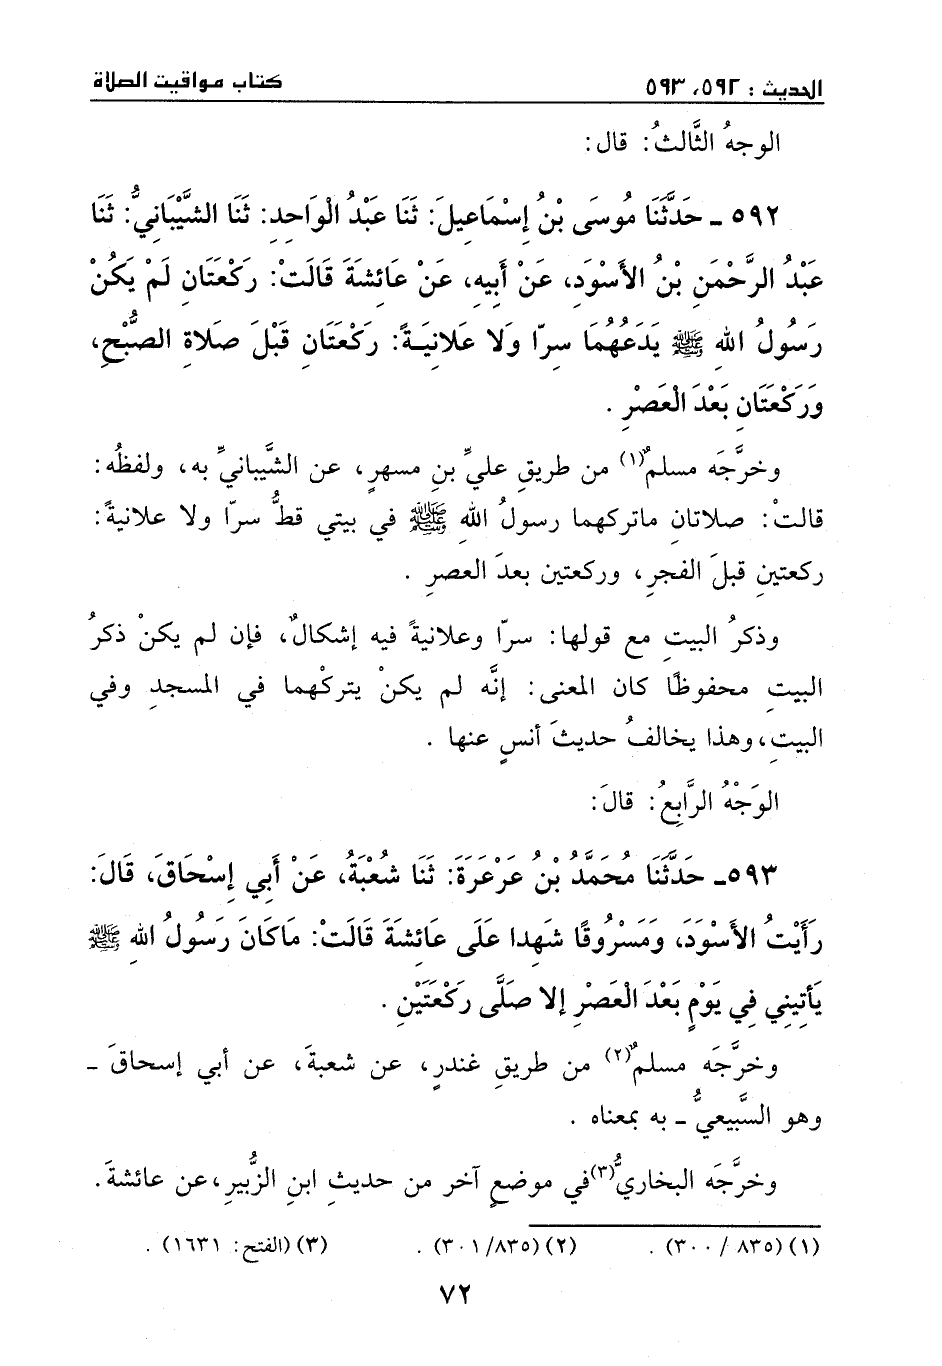 الحديث : ٥٩٢، ٥٩٣
كتاب مواقيت الصلاة
الوجهُ الثَّالثُ: قال:
٥٩٢ ـ حَدَّثَنَا مُوسَى بْنُ إِسْمَاعِيلَ: ثَنَا عَبْدُ الْوَاحِدِ: ثَنَا الشَّيْبَانِيُّ: ثَنَا
عَبْدُ الرَّحْمَنِ بْنُ الأَسْوَدِ، عَنْ أَبِيهِ، عَنْ عَائِشَةَ قَالَتْ: رَكْعَتَانِ لَمْ يَكُنْ
رَسُولُ اللهِ ﷺ يَدَعُهُمَا سِرًّا وَلا عَلانِيَةً: رَكْعَتَانِ قَبْلَ صَلاةِ الصُّبْحِ،
وَرَكْعَتَانِ بَعْدَ الْعَصْرِ .
وخرَّجَه مسلمٌ(١) من طريقِ عليِّ بنِ مسهرٍ، عن الشَّيبانيِّ به، ولفظُه:
قالتْ: صلاتانِ ماتركهما رسولُ اللهِ ﷺ في بيتي قطُّ سرًّا ولا علانيةً:
ركعتينِ قبلَ الفجرِ، وركعتينِ بعدَ العصرِ .
وذكرُ البيتِ مع قولها: سرًّا وعلانيةً فيه إشكالٌ، فإن لم يكنْ ذكرُ
البيتِ محفوظًا كان المعنى: إنَّه لم يكنْ يتركْهما في المسجدِ وفي
البيتِ، وهذا يخالفُ حديثَ أنسٍ عنها .
الوَجْهُ الرَّابعُ: قالَ:
٥٩٣ـ حَدَّثَنَا مُحَمَّدُ بْنُ عَرْعَرَةَ: ثَنَا شُعْبَةُ، عَنْ أَبِي إِسْحَاقَ، قَالَ:
رَأَيْتُ الأَسْوَدَ، وَمَسْرُوقًا شَهِدا عَلَى عَائِشَةَ قَالَتْ: مَاكَانَ رَسُولُ اللهِ ﷺ
يَأتِينِي فِي يَوْمٍ بَعْدَ الْعَصْرِ إِلا صَلَّى رَكْعَتَيْنِ .
وخرَّجَه مسلمٌ(٢) من طريقِ غندرٍ، عن شعبةَ، عن أبي إسحاقَ ـ
وهو السَّبيعيُّ ـ به بمعناه .
وخرَّجَه البخاريُّ(٣)في موضعٍ آخر من حديثِ ابنِ الزُّبيرِ، عن عائشةَ.
(١) (٨٣٥ / ٣٠٠) . (٢) (٨٣٥/ ٣٠١) . (٣) (الفتح: ١٦٣١) .
٧٢